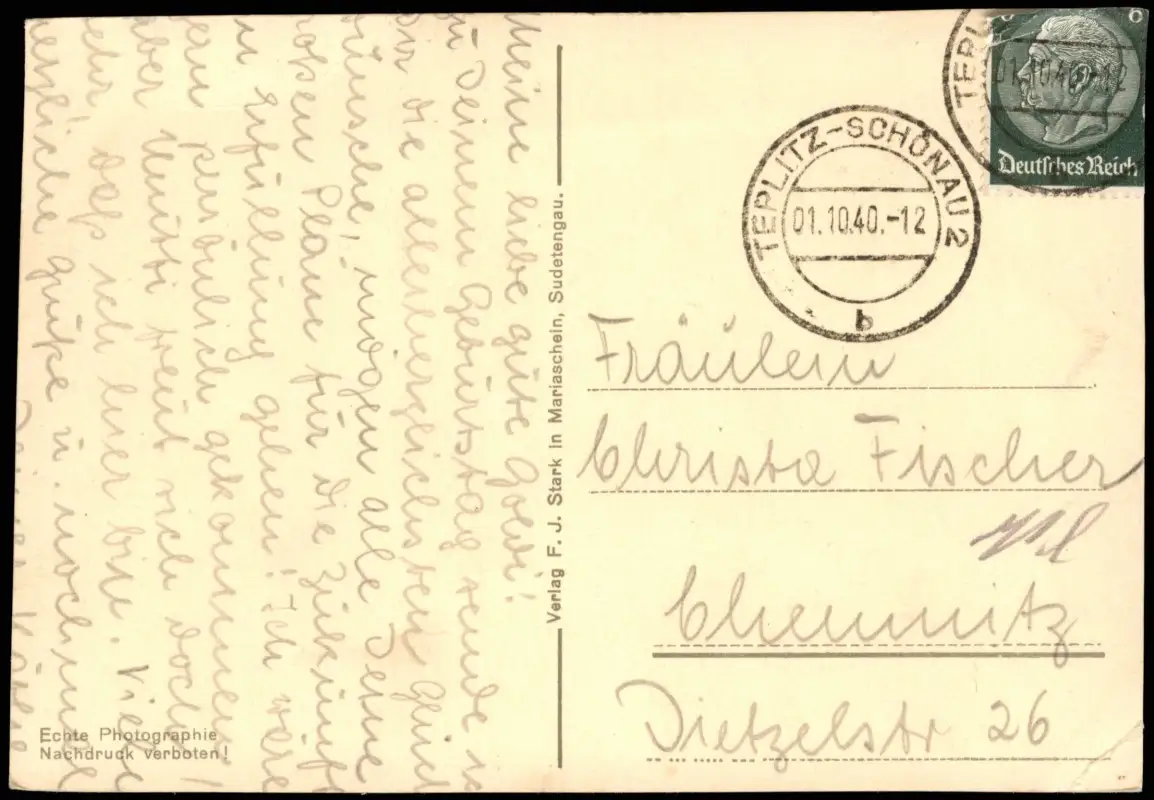 Meine liebe gute Goldi!
Zu Deinem Geburtstag sende ich
Dir die allerherzlichsten Glück
wünsche! mögen alle Deine
großen Pläne für die Zukunft
in Erfüllung gehen! Ich wäre
gern persönlich gekommen!
aber Mutti freut sich doch
sehr daß ich hier bin. Viele
herzliche Grüße u. nochmal
Echte Photographie
Nachdruck verboten!
Verlag F. J. Stark in Mariaschein, Sudetengau.
TEPLITZ-SCHÖNAU 2
01.10.40.-12
b
TEPL
01.10.40.-12
6
Deutsches Reich
Fräulein
Christa Fischer
Chemnitz
Dietzelstr 26